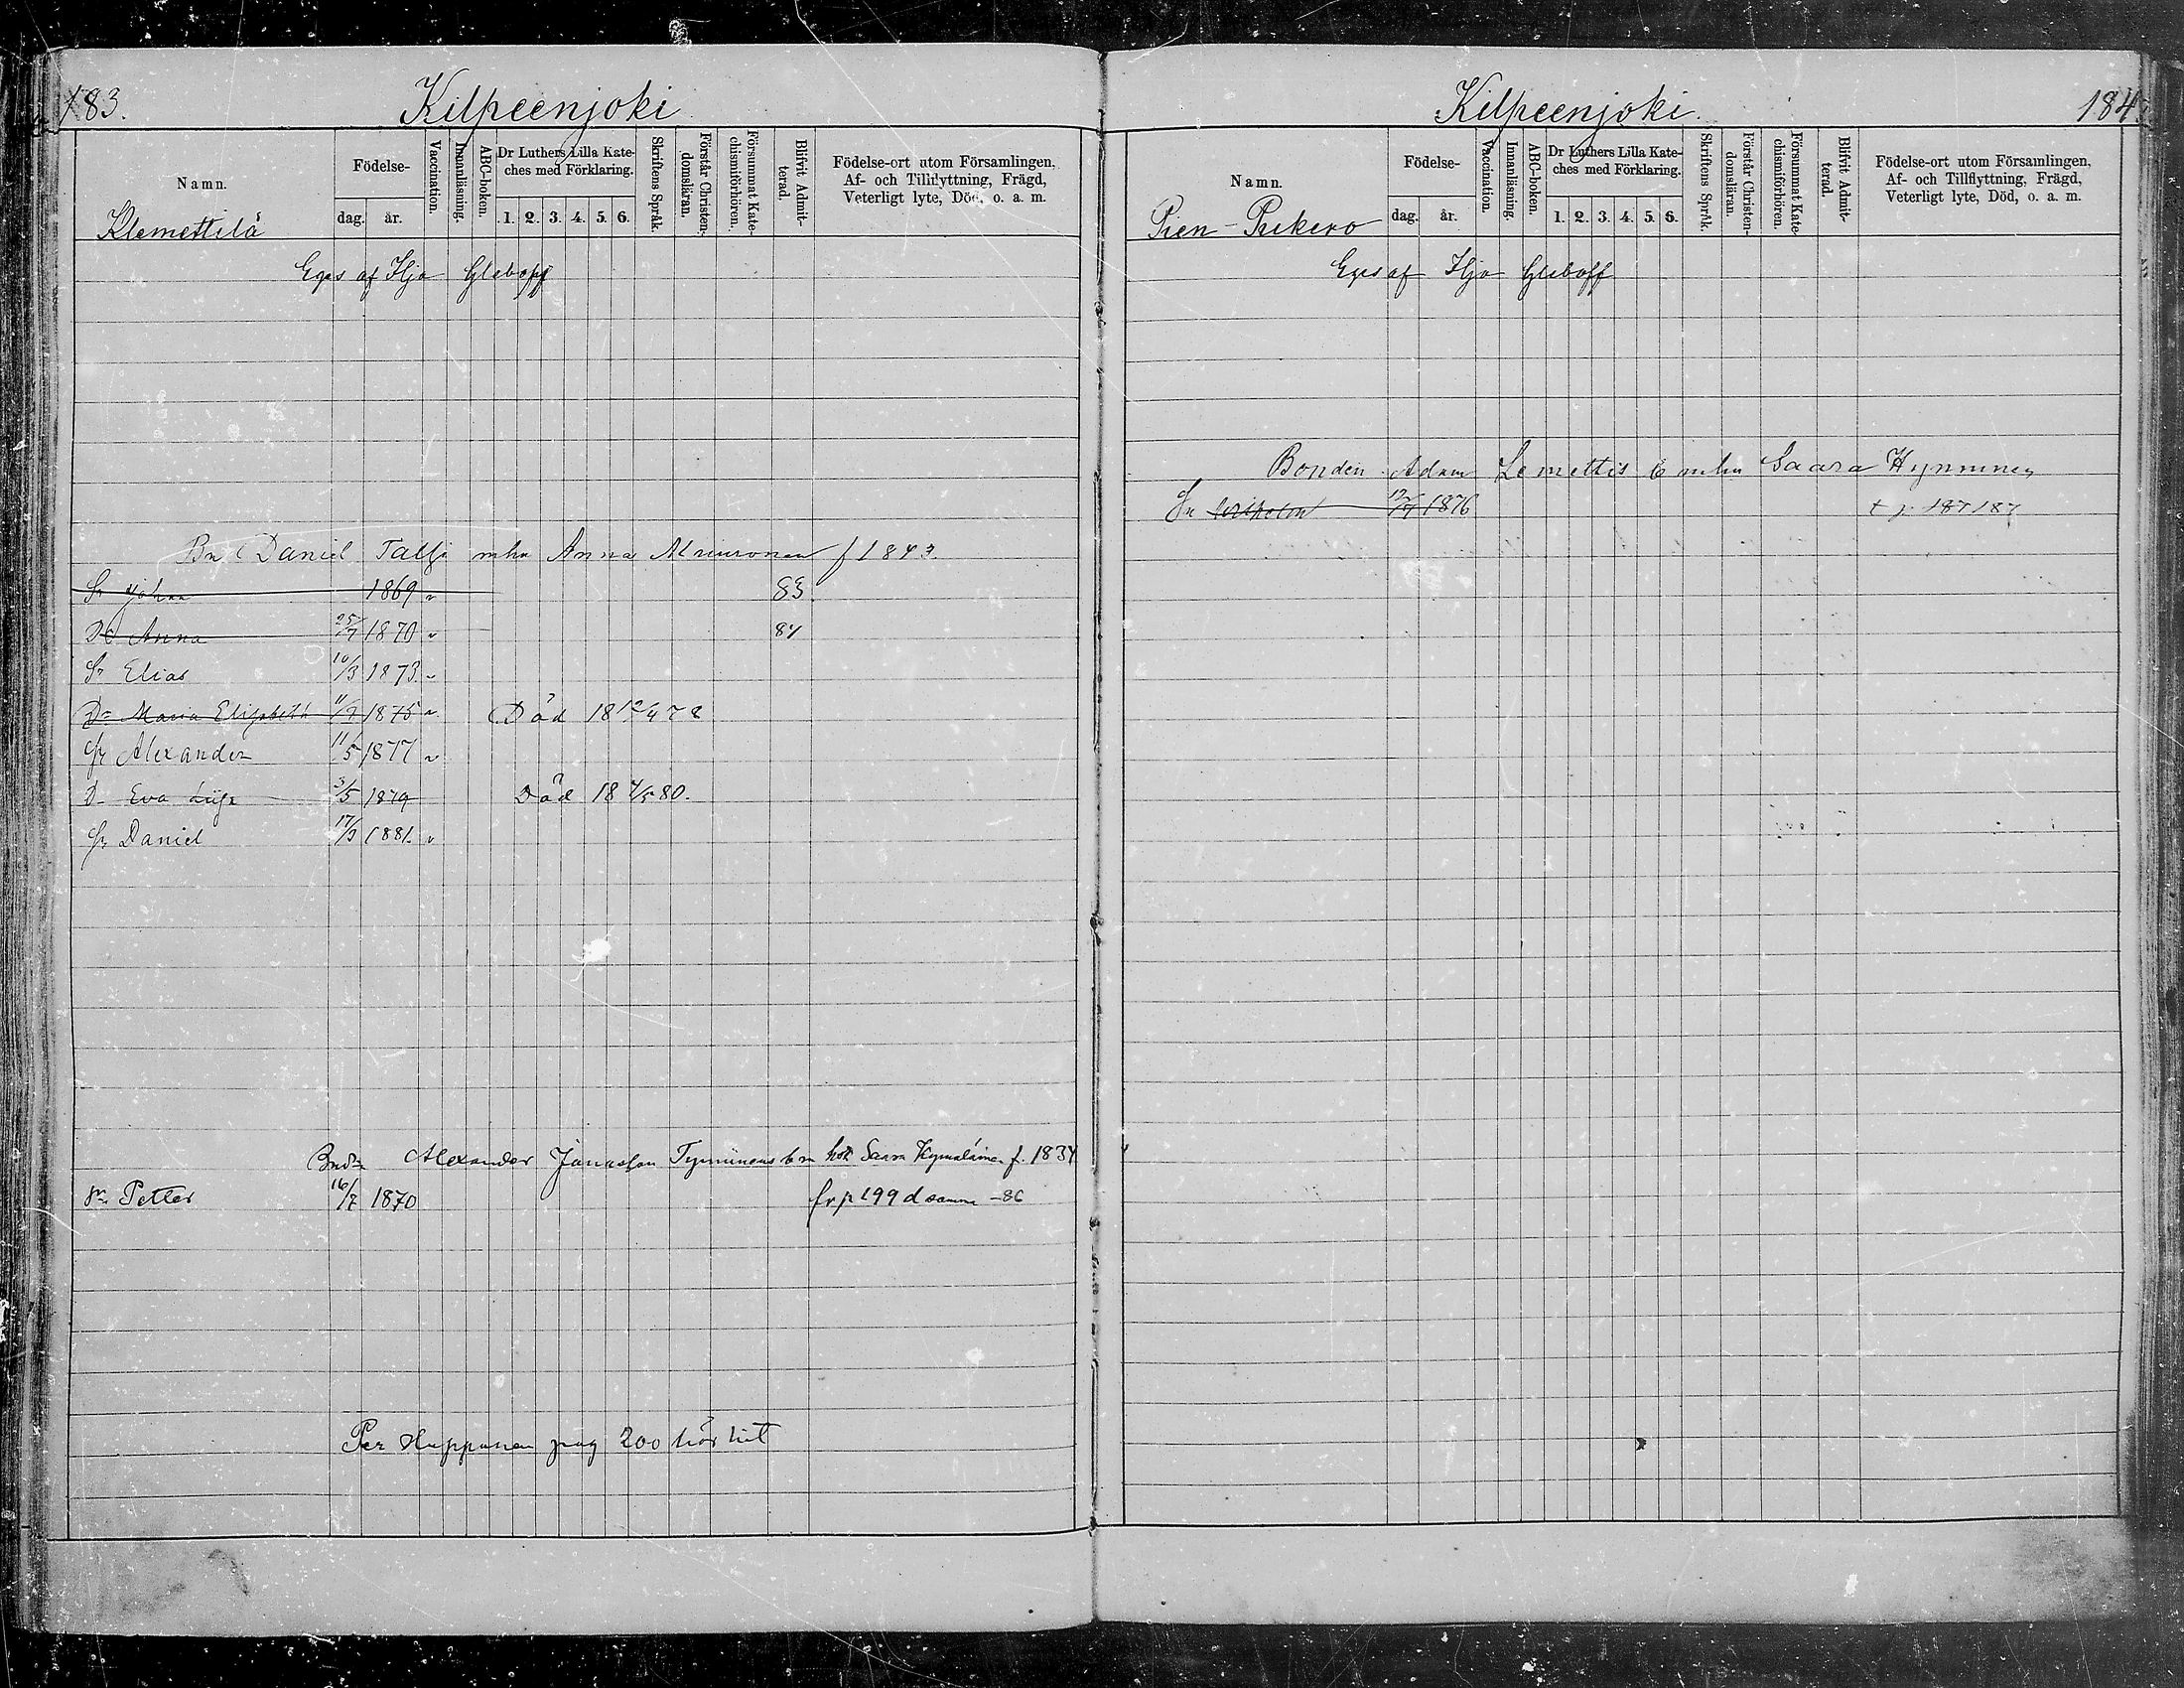 183.
Kilpeenjoki
Namn.
Födelse-
dag. år.
Vaccination.
Innanläsning.
ABC-boken.
Dr Luthers Lilla Kate-
ches med Förklaring.
1. 2. 3. 4. 5. 6.
Skriftens Språk.
Förstår Christen-
domsläran.
Försummat Kate-
chismiförhören.
Blifvit Admit-
terad.
Födelse-ort utom Församlingen,
Af- och Tillflyttning, Frägd,
Veterligt lyte, Död, o. a. m.
Klemettilä
Eges af Ilja Gleboff
Bn Daniel Talja mhu Anna f 1843.
Sn Johan 1869 " 83.
Dr Anna 25/7 1870 " 84
Sn Elias 10/3 1873 "
Dr Maria Elisabeth 11/9 1875 " Död 18 12/4 78
Sn Alexander 11/5 1877 "
Dr Eva 3/5 1879 Död 18 4/5 80.
Sn Daniel 17/3 1881. "
Alexander Jonasson Saara f. 1834
Sn Petter 16/8 1870 fr p 199 d samma -86
Per Huppunen pag 200 hör hit
Kilpeenjoki.
184
Namn.
Födelse-
dag. år.
Vaccination.
Innanläsning.
ABC-boken.
Dr Luthers Lilla Kate-
ches med Förklaring.
1. 2. 3. 4. 5. 6.
Skriftens Språk.
Förstår Christen-
domsläran.
Försummat Kate-
chismiförhören.
Blifvit Admit-
terad.
Födelse-ort utom Församlingen,
Af- och Tillflyttning, Frägd,
Veterligt lyte, Död, o. a. m.
Pien-Pukero
Eges af Ilja Gleboff
Bonden Adam Lemettis mhu Saara Hynninen
Sn 1876